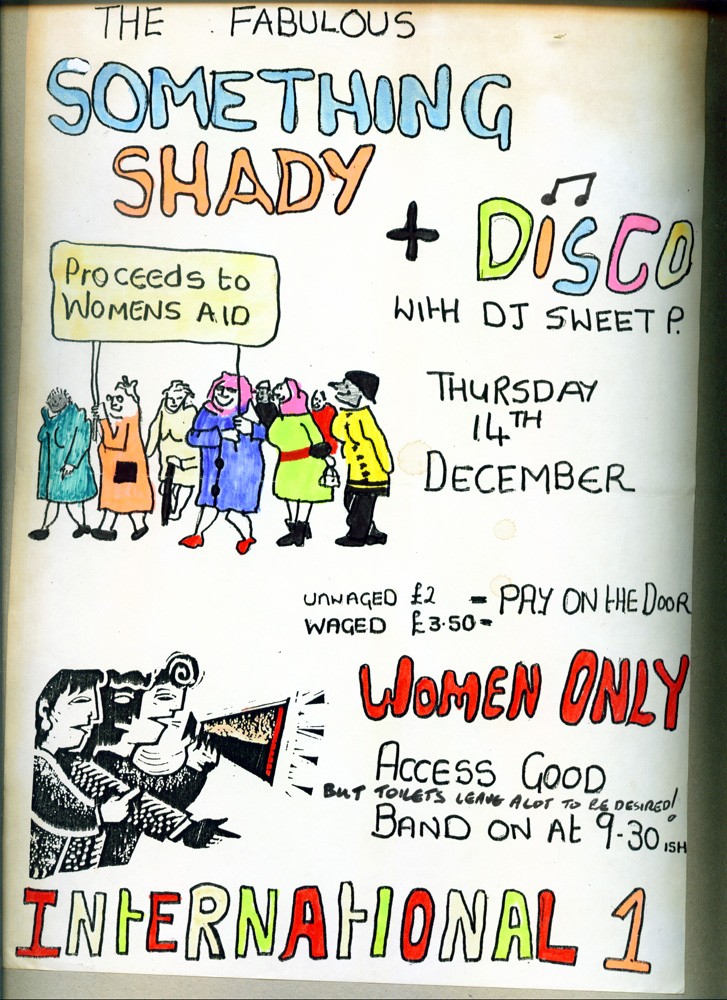 THE FABULOUS
SOMETHING
SHADY
+ DISCO
WITH DJ SWEET P.
PROCEEDS to
WOMENS AID
THURSDAY
14TH
DECEMBER
UNWAGED £2 - PAY ON THE DOOR
WAGED £3·50-
WOMEN ONLY
ACCESS GOOD
BUT TOILETS LEAVE A LOT TO BE DESIRED!
BAND ON AT 9-30 ISH
INTERNATIONAL 1